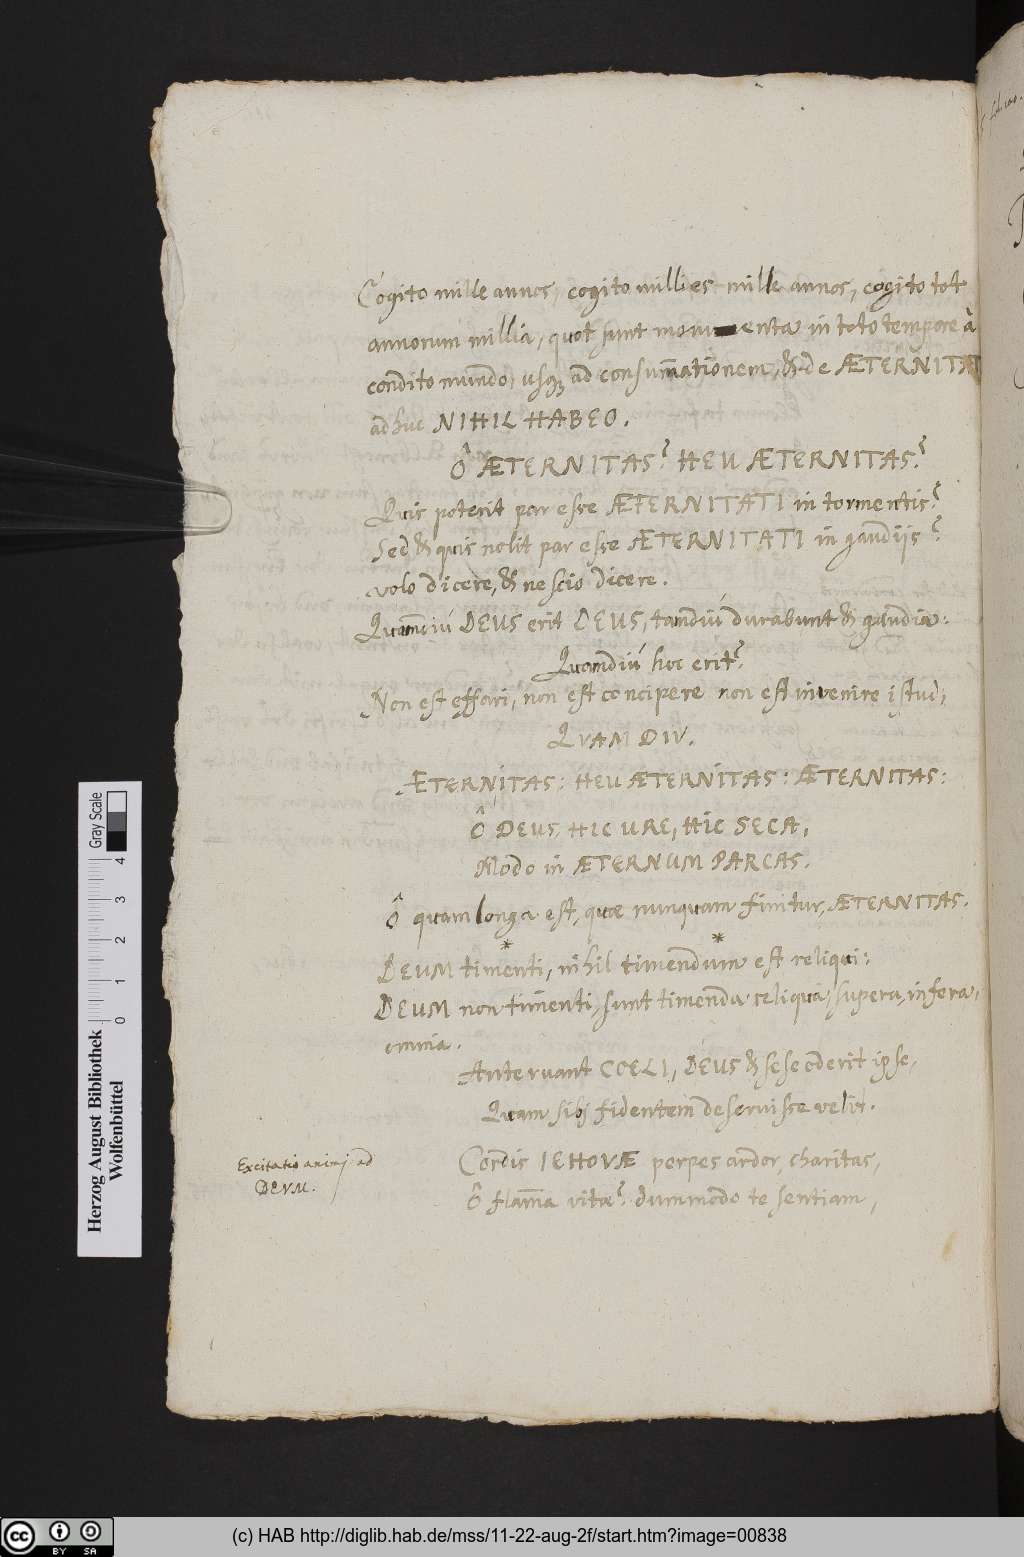 Cogito mille annos, cogito millies mille annos, cogito tot
annorum millia, quot sunt momenta in toto tempore à
condito mundo, usq; ad consum̄ationem, & de ÆTERNITAT
adhuc NIHIL HABEO.
Ô ÆTERNITAS? HEU ÆTERNITAS?
Quis poterit par esse ÆTERNITATI in tormentis?
Sed & quis nolit par esse ÆTERNITATI in gaudijs?
volo dicere, & nescio dicere.
Quamdiú DEUS erit DEUS, tamdiú durabunt & gaudia:
Quamdiú hoc erit?
Non est effari, non est concipere non est invenire istud;
QVAM DIV.
ÆTERNITAS: HEU ÆTERNITAS: ÆTERNITAS:
Ô DEUS, HIC URE, HIC SECA,
Modo in ÆTERNUM PARCAS.
Ô quam longa est, quæ nunquam finitur, ÆTERNITAS.
* *
DEUM timenti, nihil timendum est reliqui:
DEUM non timenti, sunt timenda reliqua, supera, infera,
omnia.
Ante ruant COELI, DEUS & sese oderit ipse,
Quam sibj fidentem deseruisse velit.
Excitatio animj ad
DEVM.
Cordis IEHOVÆ perpes ardor, charitas,
Ô flam̄a vitæ? dummodo te sentiam,
Herzog August Bibliothek
Wolfenbüttel
Gray Scale
0 1 2 3 4
(c) HAB http://diglib.hab.de/mss/11-22-aug-2f/start.htm?image=00838
cc BY SA